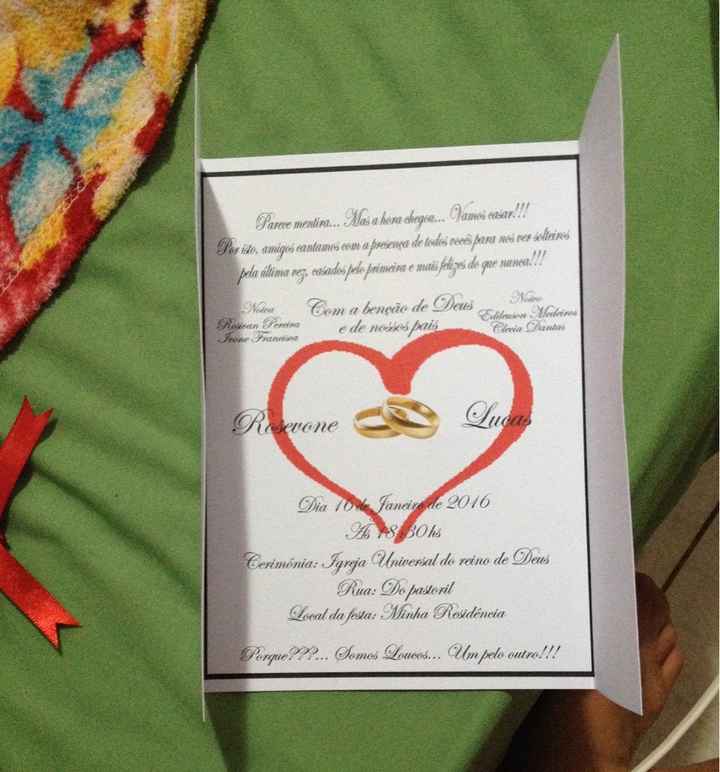 Parece mentira... Mas a hora chegou... Vamos casar!!!
Por isto, amigos cantamos com a presença de todos vocês para nos ver solteiros
pela última vez, casados pelo primeira e mais felizes do que nunca!!!
Com a benção de Deus
e de nossos pais
Noiva
Rosean Pereira
Ivone Francisca
Noivo
Edileuson Medeiros
Clecia Dantas
Rosevone
Lucas
Dia 16 de Janeiro de 2016
As 18:30hs
Cerimônia: Igreja Universal do reino de Deus
Rua: Do pastoril
Local da festa: Minha Residência
Porque???... Somos Loucos... Um pelo outro!!!